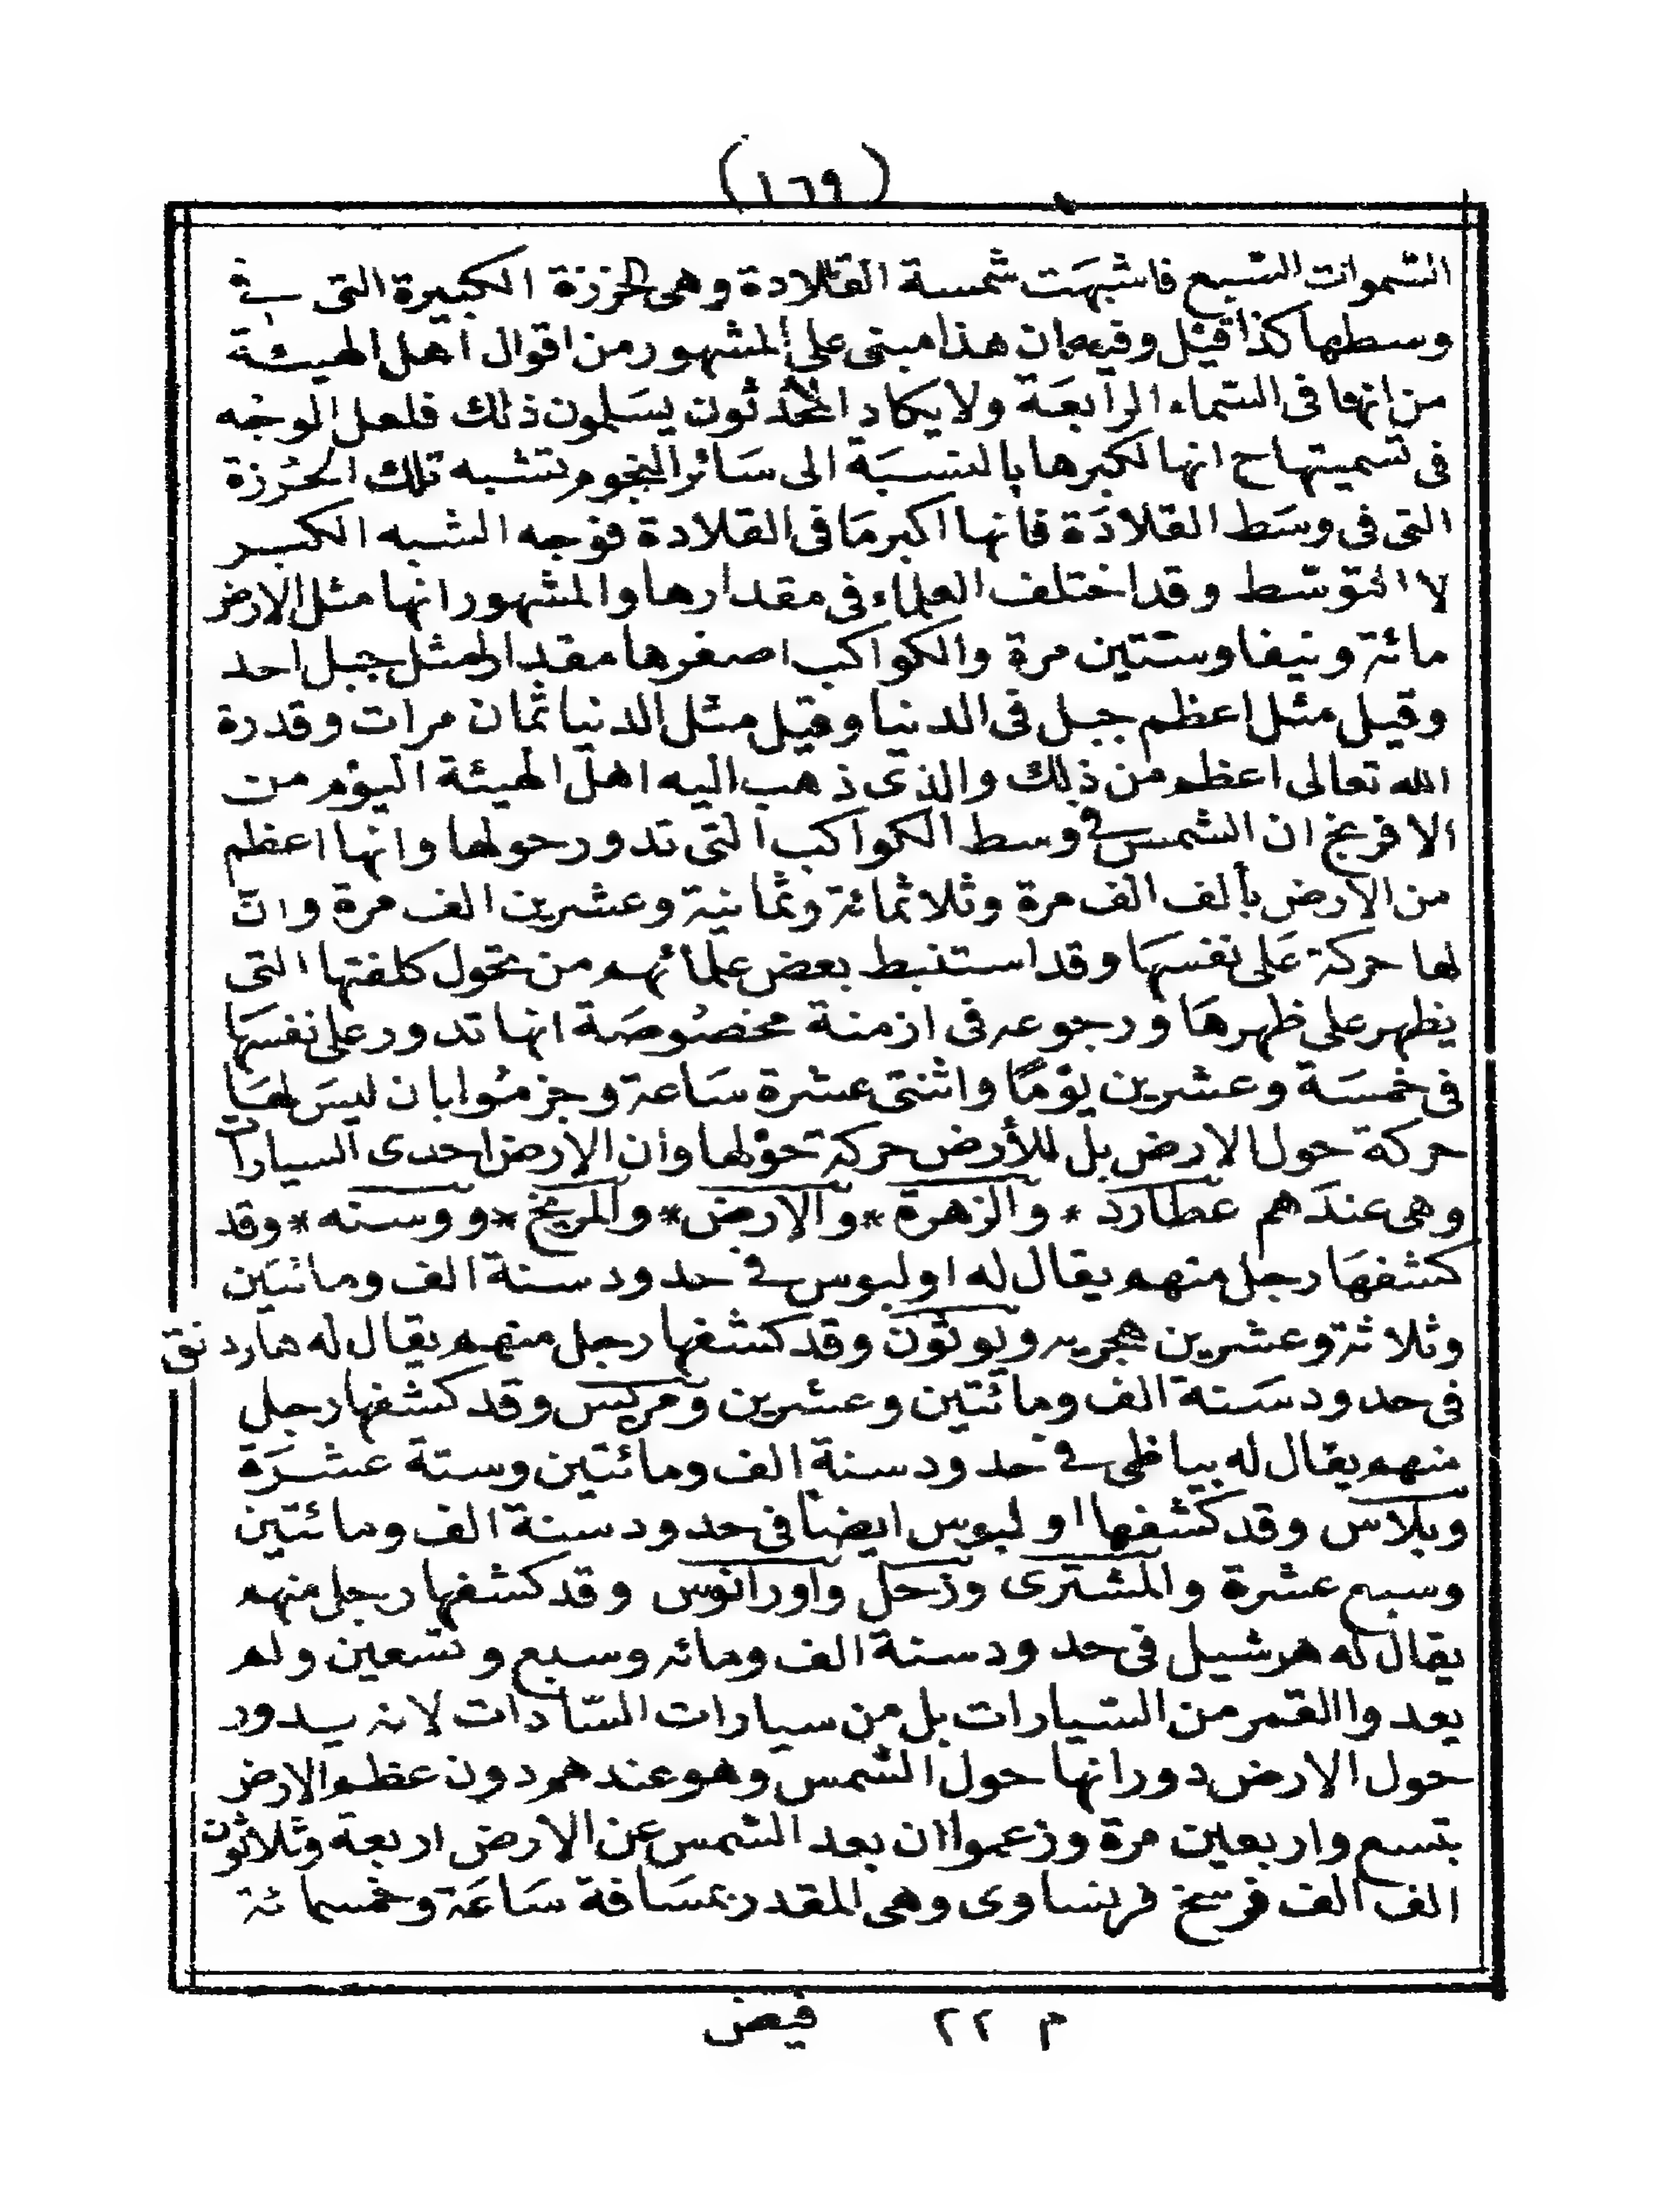 (١٦٩)
السّموات السّبع فاشبهَت شمسة القلادة وهى الخرزة الكبيرة التى فى
وسطها كذا قيل وفيه ان هذا مبنى على المشهور من اقوال اهل الهيئة
من انها فى السّماء الرابعَة ولا يكاد المحدثون يسَلمون ذلك فلعل الوجه
فى تسميتها ح انها لكبرها بالنسبَة الى سَائر النجوم تشبه تلك الخُرزة
التى فى وسَط القلادَة فانها اكبر مَا فى القلادة فوجه الشبه الكبر
لا التوسّط وقد اختلف العلماء فى مقدارها والمشهور انها مثل الارض
مائة ونيفا وستين مرة والكواكب اصغرها مقدار مثل جبل احد
وقيل مثل اعظم جبل فى الدنيا وقيل مثل الدنيا ثمان مرات وقدرة
الله تعالى اعظم من ذلك والذى ذهب اليه اهل الهيئة اليوم من
الافرنج ان الشمس فى وسط الكواكب التى تدور حولها وانها اعظم
من الارض بألف الف مرة وثلاثمائة وثمانية وعشرين الف مرة وان
لها حركة عَلى نفسهَا وقد استنبط بعض علمائهم من تحول كلفتها التى
يظهر على ظهرهَا ورجوعه فى ازمنة مخصُوصَة انها تدور على نفسهَا
فى خمسَة وعشرين يوْمًا واثنتى عشرة سَاعة وجزمُوا بان ليسَ لهَا
حركة حول الارض بل للأرض حركة حوْلها وان الارض احدى السيارات
وهى عندَهم عطارد * والزهرة * والارض * والمريخ * ووسته * وقد
كشفهَا رجل منهم يقال له اولبوس فى حدود سنة الف ومائتين
وثلاثة وعشرين هجريه ويونون وقد كشفها رجل منهم يقال له هاردنق
فى حدود سَنة الف ومائتين وعشرين ومركس وقد كشفها رجل
منهم يقال له بياظى فى حدود سنة الف ومائتين وستة عشَرَة
وبلاس وقد كشفها اولبوس ايضا فى حدود سنة الف ومائتين
وسبع عشرة والمشترى وزحل واورانوس وقد كشفها رجل منهم
يقال له هرشيل فى حدود سنة الف ومائه وسبع وتسعين ولم
يعدوا القمر من السّيارات بل من سيارات السّادات لانه يدور
حول الارض دورانها حول الشمس وهو عندهم دون عظم الارض
بتسع واربعين مرة وزعموا ان بعد الشمس عن الارض اربعة وثلاثون
الف الف فرسخ فرنساوى وهى المقدر بمسَافة سَاعَة وخمسمائة
م ٢٢ فيض